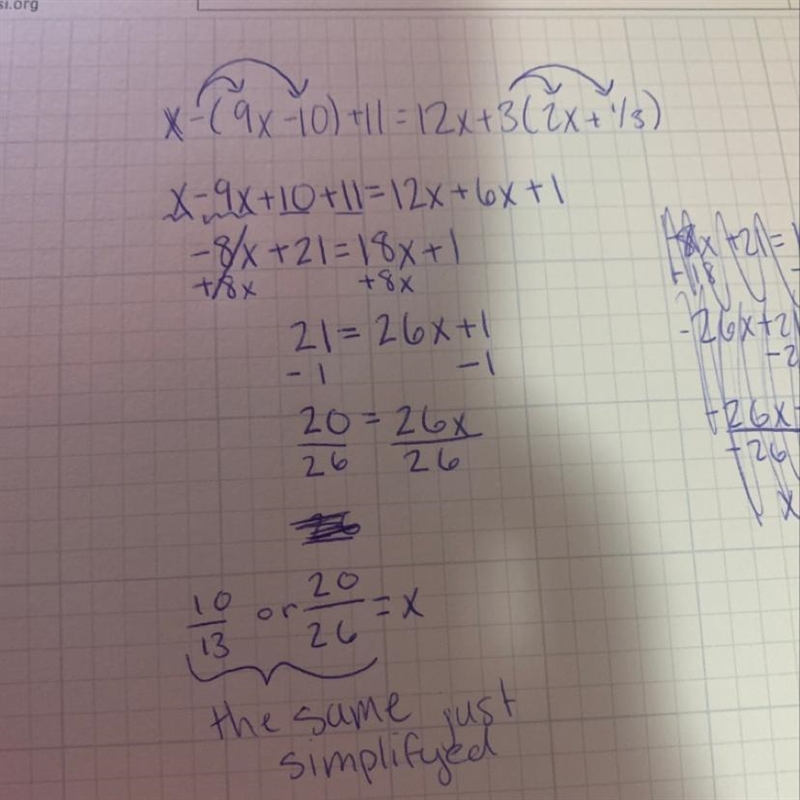 si.org
x-(9x-10)+11=12x+3(2x+1/3)
x-9x+10+11=12x+6x+1
-8x+21=18x+1
+8x +8x
21=26x+1
-1 -1
20/26=26x/26
10/13 or 20/26=x
the same just
simplifyed
-8x+21=1
+18
-26x+21
-2
-26x
-26
x